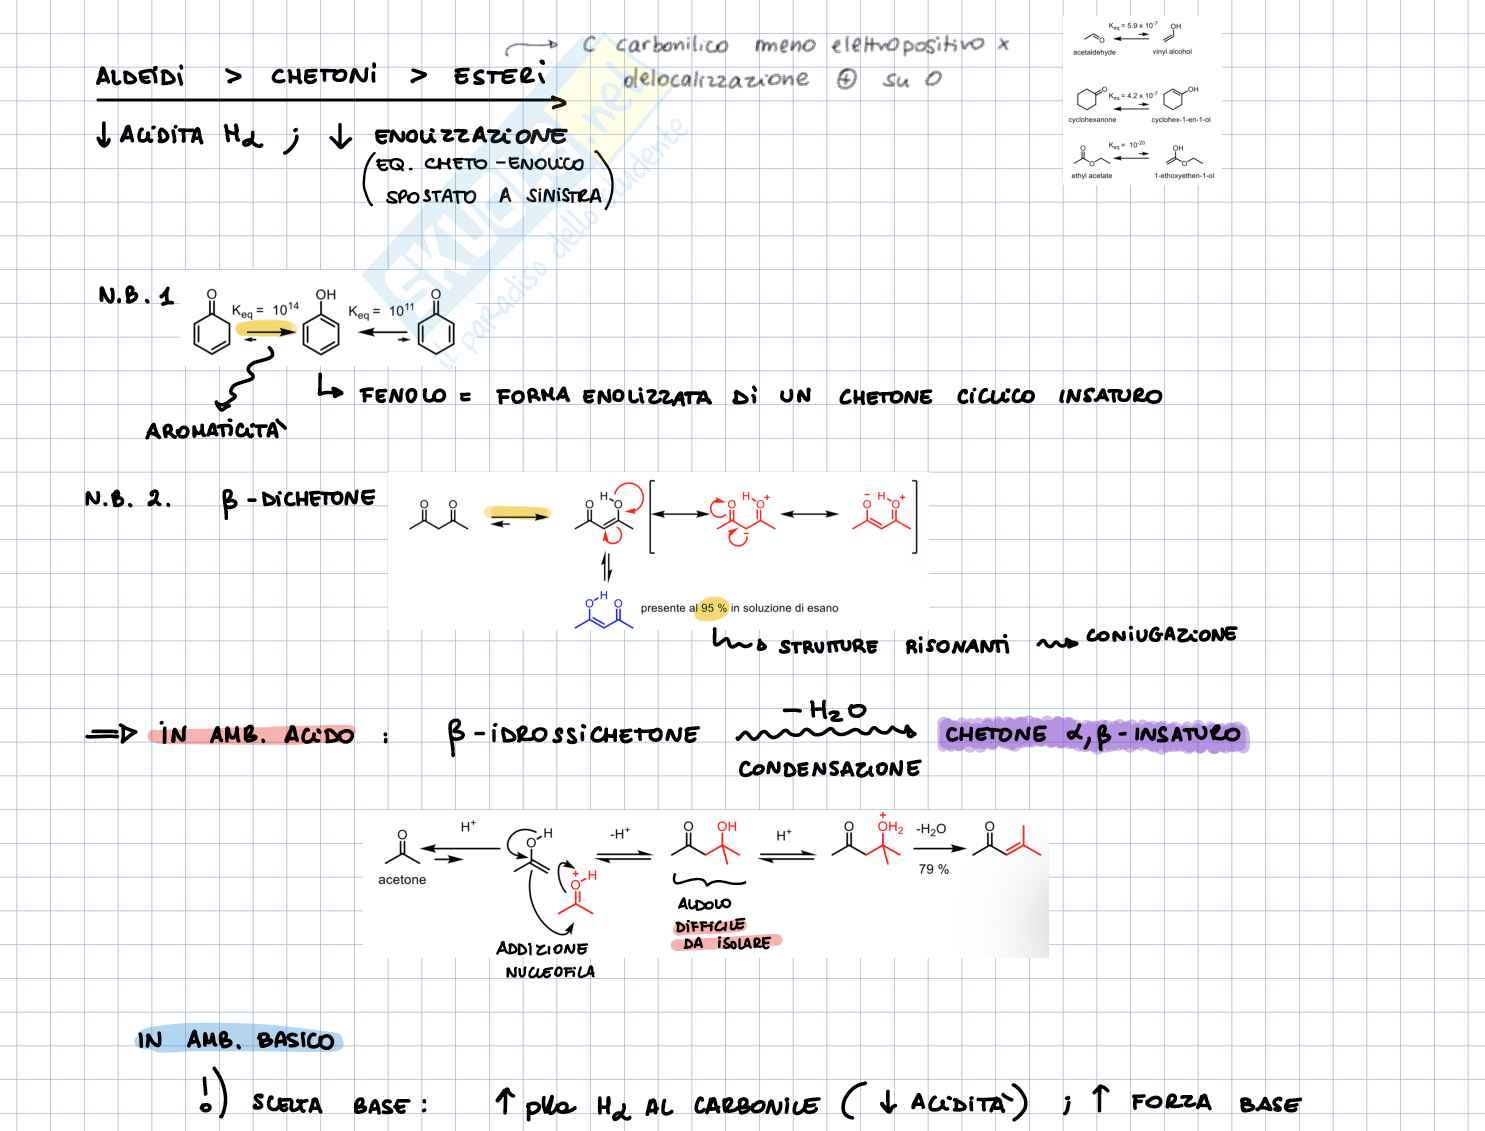 C carbonilico meno elettropositivo x
ALDEIDI > CHETONI > ESTERI
delocalizzazione ⊕ su O
↓ ACIDITA Hα ; ↓ ENOLIZZAZIONE
(EQ. CHETO-ENOLICO
SPOSTATO A SINISTRA)
Keq = 5.9 x 10⁻⁷
OH
O
acetaldehyde
vinyl alcohol
O
Keq = 4.2 x 10⁻⁷
OH
cyclohexanone
cyclohex-1-en-1-ol
O
Keq = 10⁻²⁰
OH
O
O
ethyl acetate
1-ethoxyethen-1-ol
SKUOLA.net
il paradiso dello studente
N.B. 1
O
Keq = 10¹⁴
OH
Keq = 10¹¹
O
FENOLO = FORMA ENOLIZZATA DI UN CHETONE CICLICO INSATURO
AROMATICITA'
N.B. 2. β-DICHETONE
O O
O H O
O H O +
- O H O +
O H O
presente al 95 % in soluzione di esano
STRUTTURE RISONANTI CONIUGAZIONE
⇒ IN AMB. ACIDO : β-IDROSSICHETONE
-H2O
CONDENSAZIONE
CHETONE α,β-INSATURO
O
acetone
H⁺
O H
+ O H
-H⁺
O OH
H⁺
O + OH₂
-H₂O
79 %
O
ALDOLO
DIFFICILE
DA ISOLARE
ADDIZIONE
NUCLEOFILA
IN AMB. BASICO
!) SCELTA BASE : ↑ pKa Hα AL CARBONILE (↓ ACIDITA') ; ↑ FORZA BASE